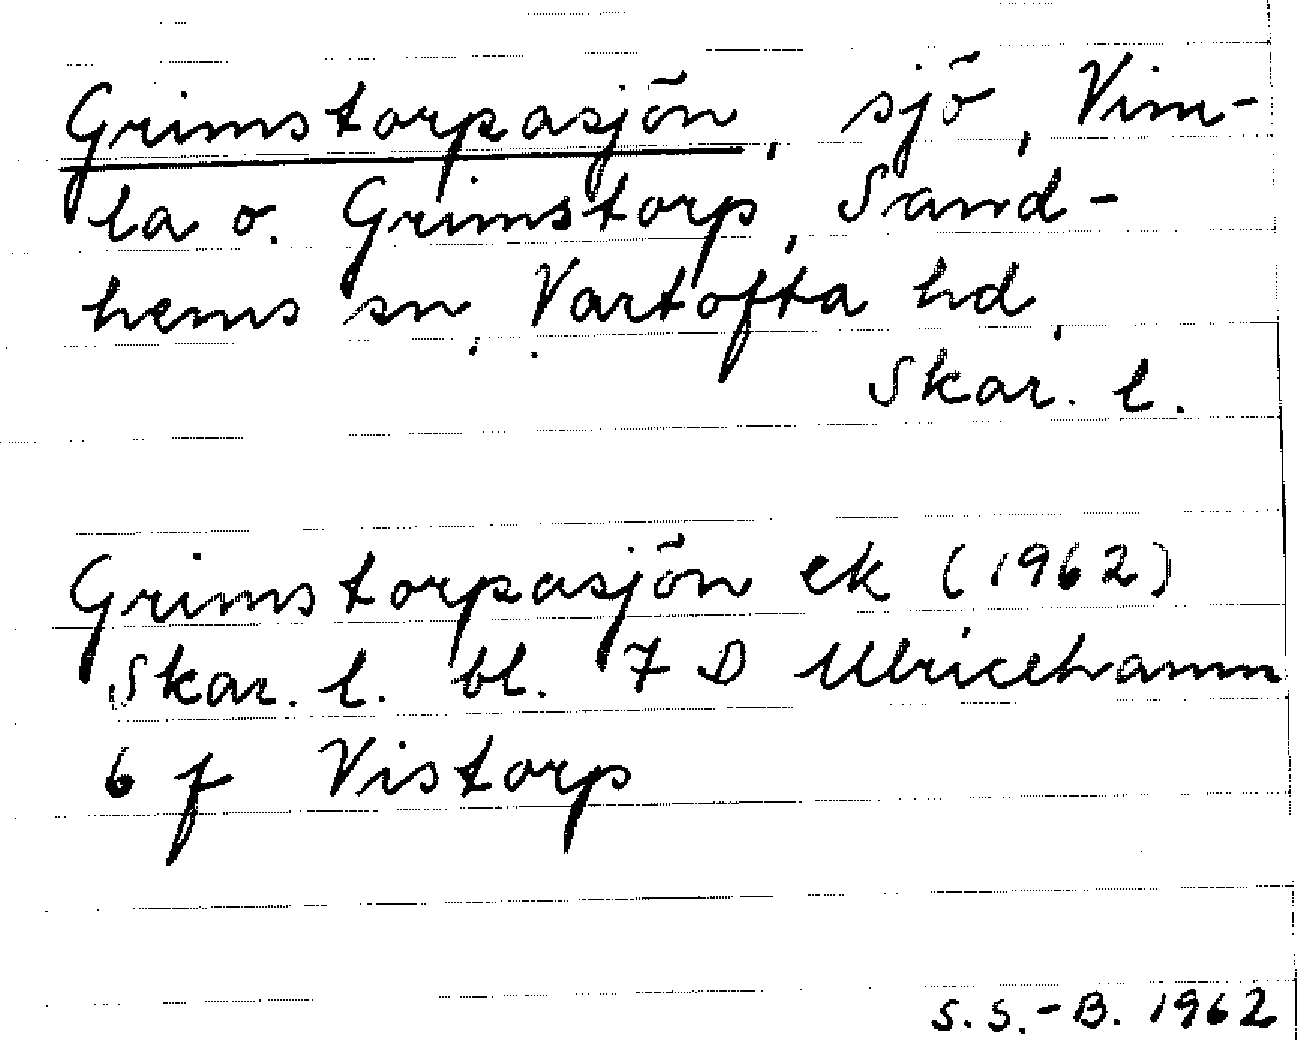 Grimstorpasjön, sjö, Vim-
la o. Grimstorp, Sand-
hems sn, Vartofta hd,
Skar. l.
Grimstorpasjön ek (1962)
Skar. l. bl. 7 D Ulricehamn
6 f Vistorp
S.S.-B. 1962